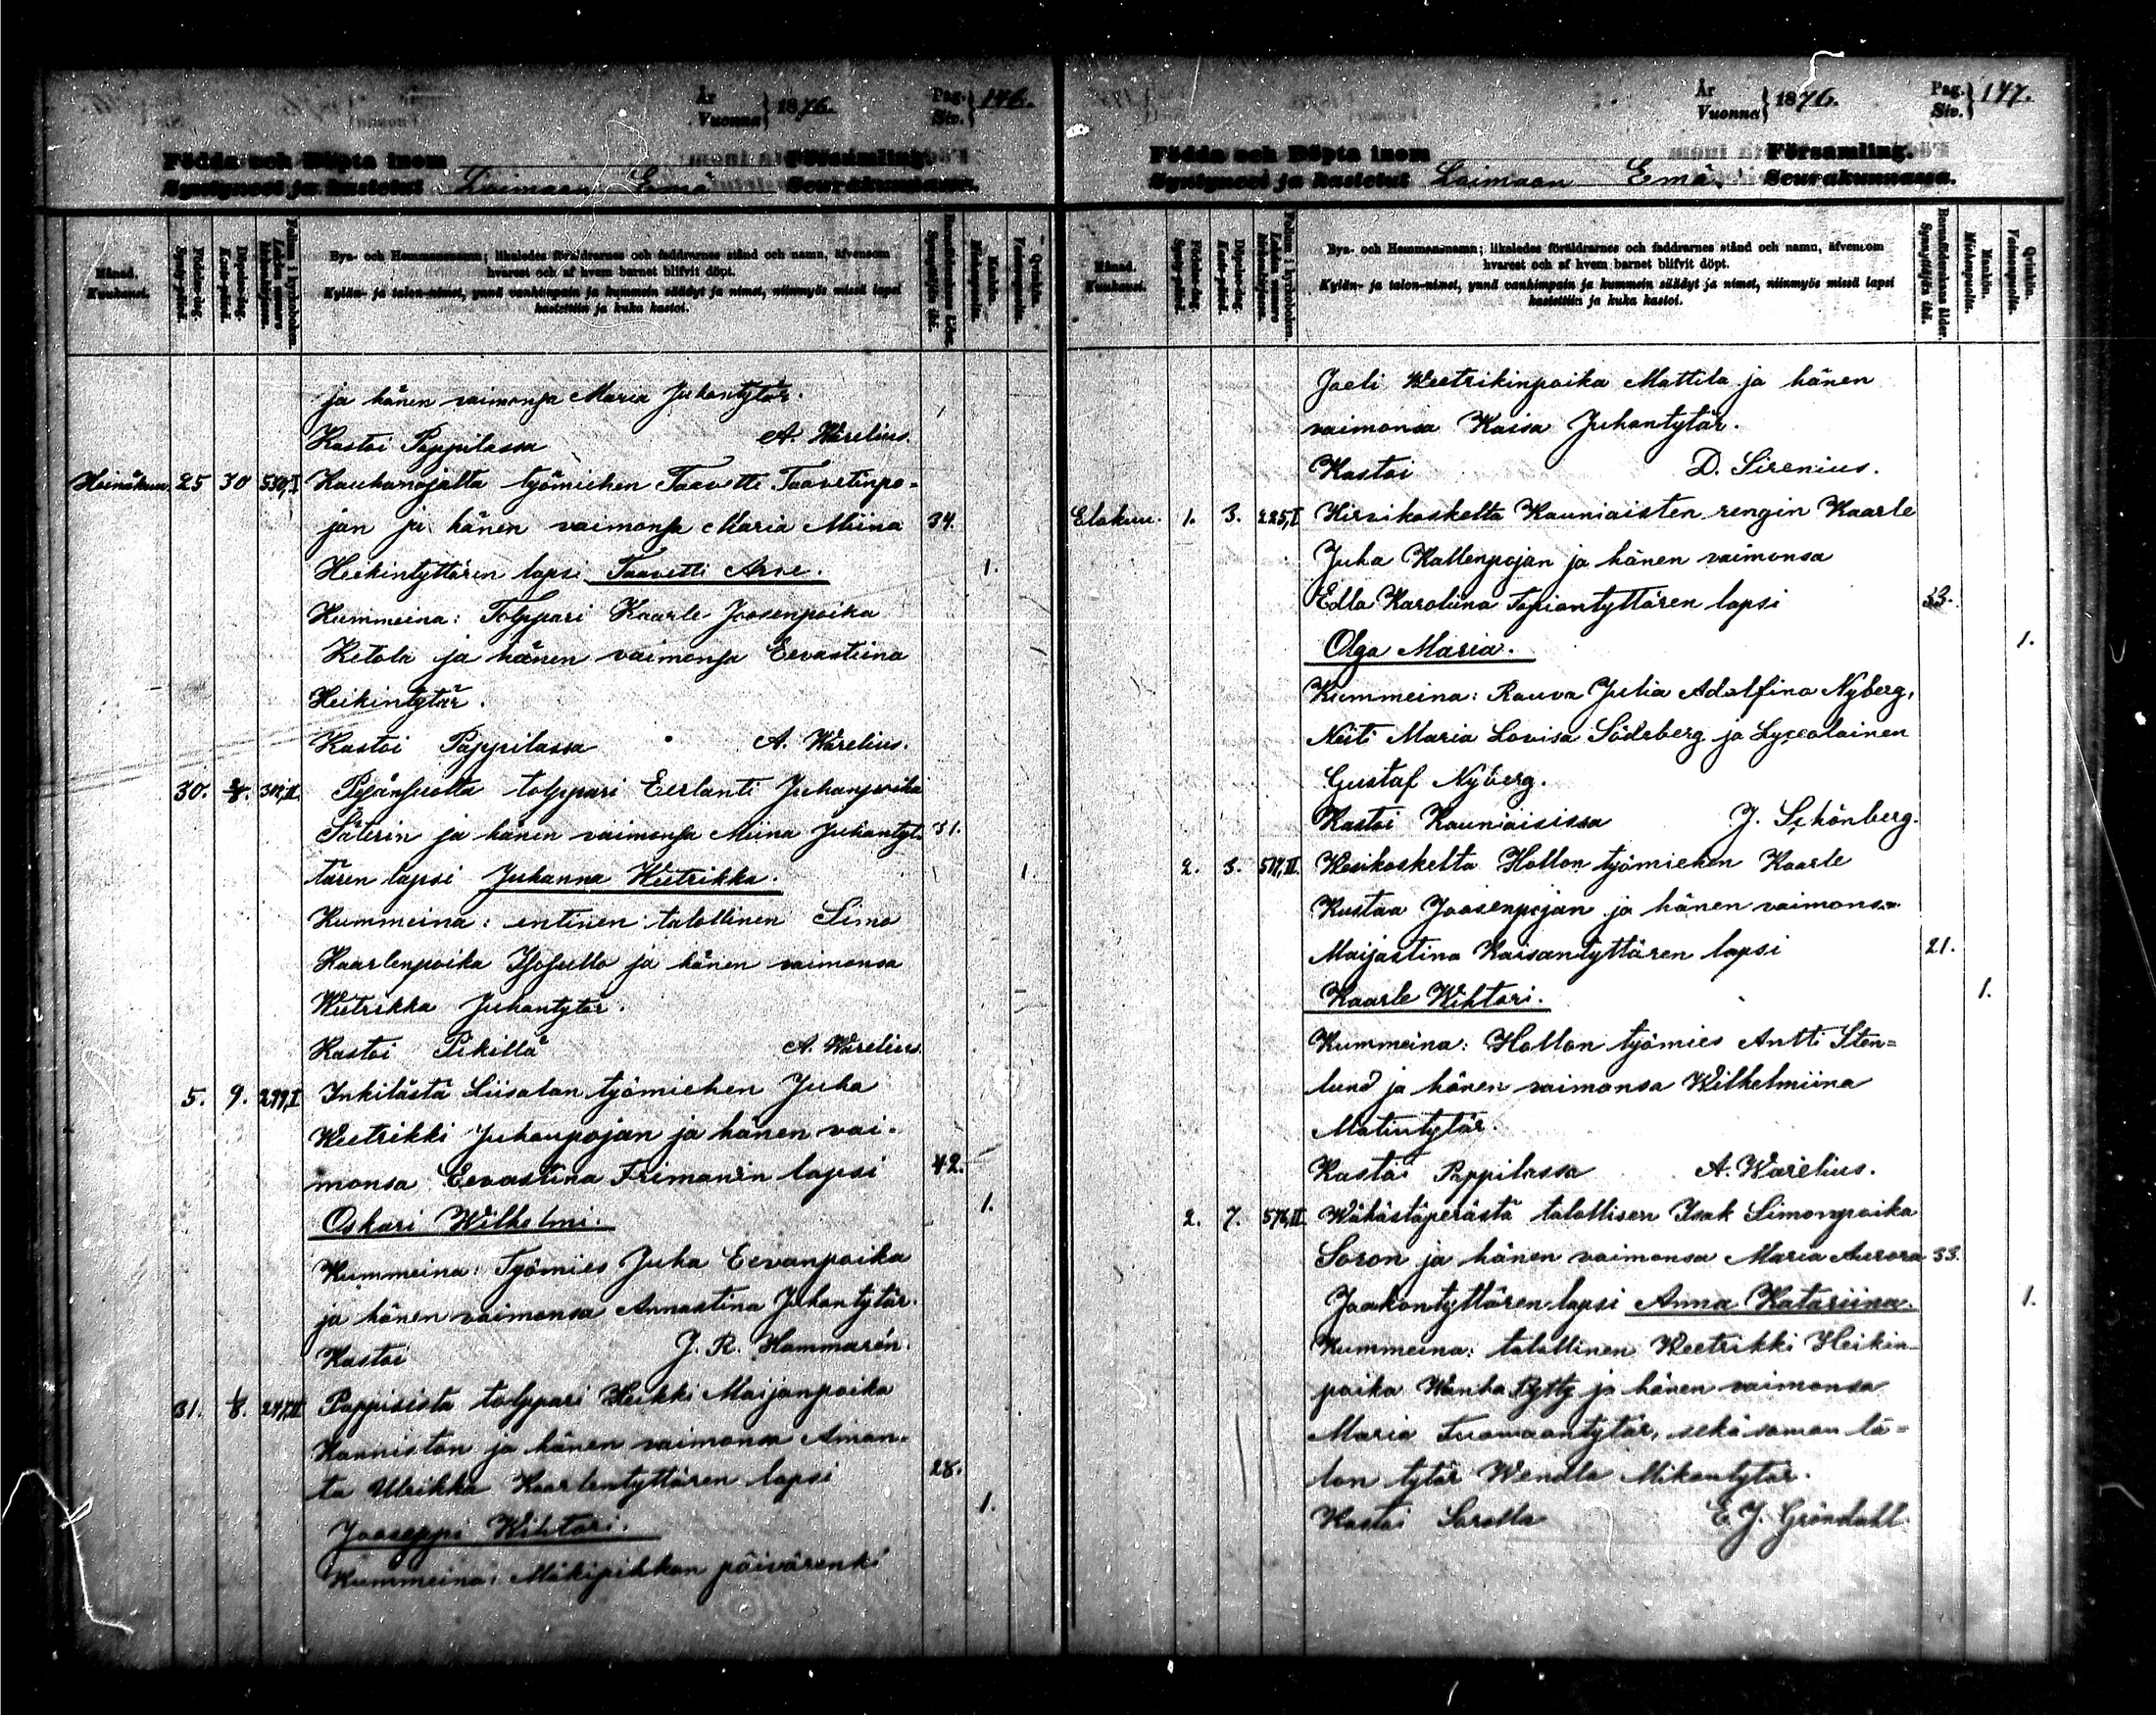 År
Vuonna } 1876.
Pag.
Siv. } 146.
Födda och Döpta inom Församling.
Syntyneet ja kastetut Loimaan Emä Seurakunnassa.
Månad.
Kuukausi.
Födelse-dag.
Synty-päivä.
Döpelse-dag.
Kaste-päivä.
Bya- och Hemmansnamn; likaledes föräldrarnes och faddrarnes stånd och namn, äfvensom
hvarest och af hvem barnet blifvit döpt.
Kylän- ja talon-nimet, ynnä vanhimpain ja kummein säädyt ja nimet, niinmyös missä lapsi
kastettiin ja kuka kastoi.
Mankön.
Miehenpuolia.
Qvinkön.
Vaimonpuolia.
ja hänen vaimonsa Maria Juhantytär.
Kastoi Pappilassa A. Warelius.
Heinäkuu. 25 30 530,I Kauhanojalta työmiehen Taavetti Taavetinpo-
jan ja hänen vaimonsa Maria Miina 34.
Heikintyttären lapsi Taavetti Arve. 1.
Kummeina: Torppari Kaarle Joosenpoika
Ketola ja hänen vaimonsa Eevastiina
Heikintytär.
Kastoi Pappilassa A. Warelius.
30. torppari Eerlanti Juhanpoika
Säterin ja hänen vaimonsa Miina Juhantyt- 31.
tären lapsi Juhanna Wetrikka. 1.
Kummeina: entinen talollinen Simo
Kaarlenpoika ja hänen vaimonsa
Wetrikka Juhantytär.
Kastoi A. Warelius.
5. 9. 299,I Inkilästä Liisalan työmiehen Juha
Weetrikki Juhanpojan ja hänen vai-
monsa Eevastina Frimanin lapsi 42.
Oskari Wilhelmi. 1.
Kummeina: Työmies Juha Eevanpoika
ja hänen vaimonsa Annastina Juhantytär.
Kastoi J. R. Hammarén.
31. 1/8. Pappisista torppari Heikki Maijanpoika
Kanniston ja hänen vaimonsa Aman-
ta Ulrikka Kaarlentyttären lapsi 28.
Jooseppi Wihtori. 1.
Kummeina: päivärenki
År
Vuonna } 1876.
Pag.
Siv. } 147.
Födda och Döpta inom Församling.
Syntyneet ja kastetut Loimaan Emä. Seurakunnassa.
Månad.
Kuukausi.
Födelse-dag.
Synty-päivä.
Döpelse-dag.
Kaste-päivä.
Bya- och Hemmansnamn; likaledes föräldrarnes och faddrarnes stånd och namn, äfvensom
hvarest och af hvem barnet blifvit döpt.
Kylän- ja talon-nimet, ynnä vanhimpain ja kummein säädyt ja nimet, niinmyös missä lapsi
kastettiin ja kuka kastoi.
Barnaföderskans ålder.
Synnyttäjän ikä.
Mankön.
Miehenpuolia.
Qvinkön.
Vaimonpuolia.
Joeli Weetrikinpoika Mattila ja hänen
vaimonsa Kaisa Juhantytär.
Kastoi D. Sirenius.
Elokuu. 1. 3. 225,I Hirvikoskelta Kauniaisten rengin Kaarle
Juha Kallenpojan ja hänen vaimonsa
Edla Karoliina Tapiontyttären lapsi 33.
Olga Maria. 1.
Kummeina: Rouva Julia Adolfina Nyberg,
Neiti Maria Lovisa Söderberg ja Lyceolainen
Gustaf Nyberg.
Kastoi Kauniaisissa J. Schönberg.
2. 3. Wesikoskelta Hollon työmiehen Kaarle
Kustaa Joosenpojan ja hänen vaimonsa
Maijastina Kaisantyttären lapsi 21.
Kaarle Wihtori. 1.
Kummeina: Hollon työmies Antti Sten=
lund ja hänen vaimonsa Wilhelmiina
Matintytär.
Kastoi Pappilassa A. Warelius.
2. 7. 576,II Wähästäperästä talollisen Isak Simonpoika
Soron ja hänen vaimonsa Maria Aurora 33.
Jaakontyttären lapsi Anna Katariina. 1.
Kummeina: talollinen Weetrikki Heikin-
poika Wanha Pytty ja hänen vaimonsa
Maria Tuomaantytär, sekä saman ta=
lon tytär Wendla Mikontytär.
Kastoi Sorolla E. J. Gröndahl.